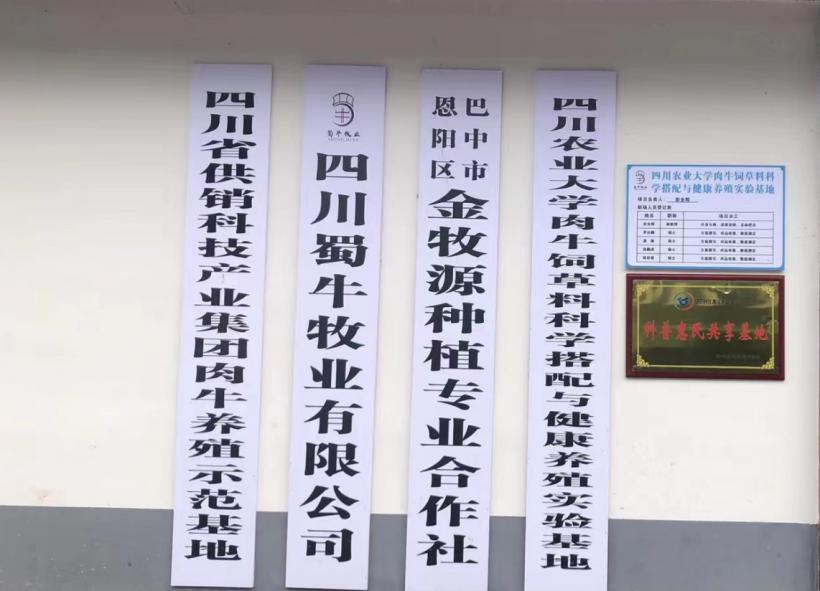 四川省供销科技产业集团肉牛养殖示范基地
蜀牛牧业
四川蜀牛牧业有限公司
巴中市
恩阳区
金牧源种植专业合作社
四川农业大学肉牛饲草料科学搭配与健康养殖实验基地
四川农业大学肉牛饲草料科
学搭配与健康养殖实验基地
项目负责人：
姓名 职称 项目分工
科普惠民共享基地